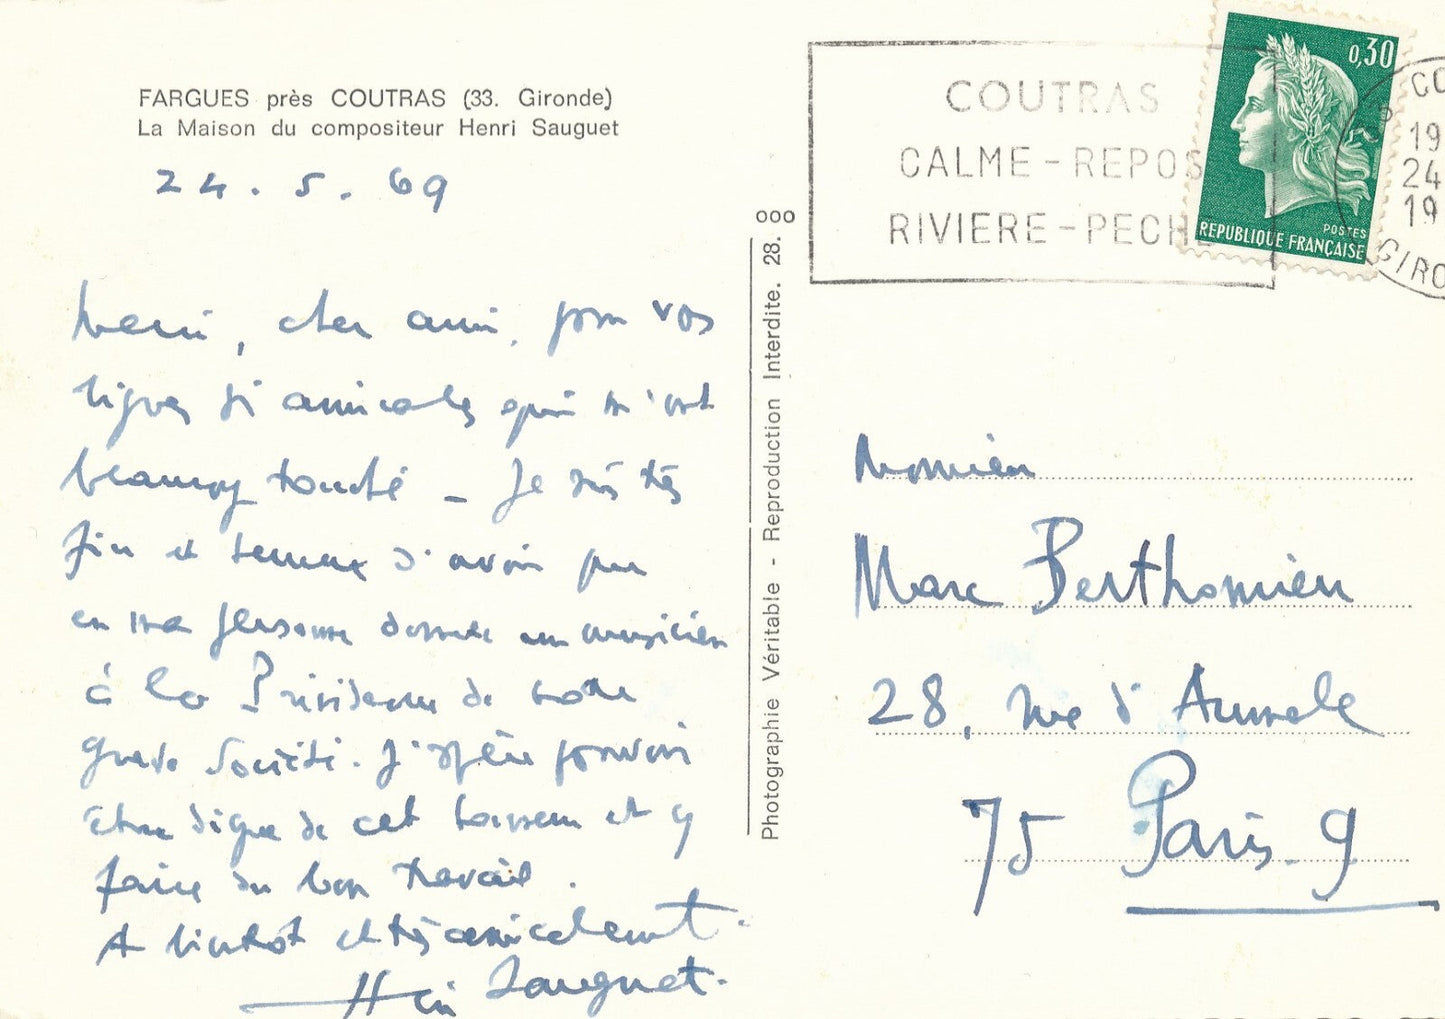 FARGUES près COUTRAS (33. Gironde)
La Maison du compositeur Henri Sauguet
24. 5. 69
Merci, cher ami, pour vos
lignes si amicales qui m'ont
beaucoup touché - Je suis très
fier et heureux d'avoir pu
en ma personne donner un musicien
à la Présidence de notre
grande Société. J'espère pouvoir
être digne de cet honneur et y
faire du bon travail.
A bientôt et très amicalement.
Henri Sauguet.
Photographie Véritable - Reproduction Interdite. 28.
COUTRAS
CALME - REPOS
RIVIERE - PECHE
0,30
POSTES
REPUBLIQUE FRANÇAISE
CO
19
24
19
GIRO
Monsieur
Marc Berthomieu
28, rue d'Aumale
75 Paris. 9